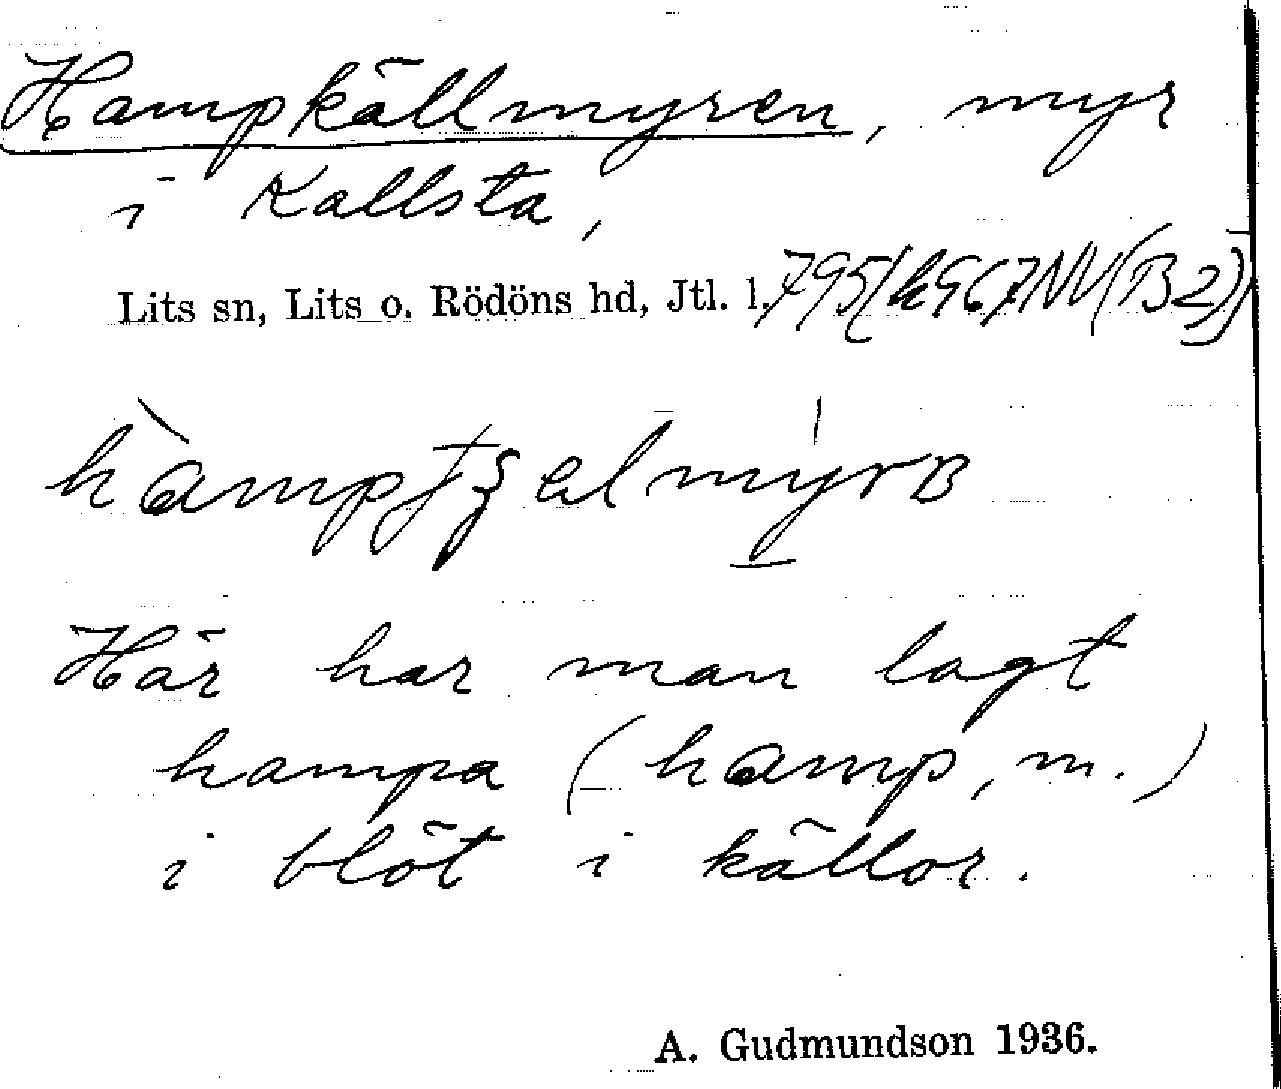 Hampkällmyren, myr
i Kallsta,
Lits sn, Lits o. Rödöns hd, Jtl. l.
Här har man lagt
hampa (hamp, m.)
i blöt i källor.
A. Gudmundson 1936.